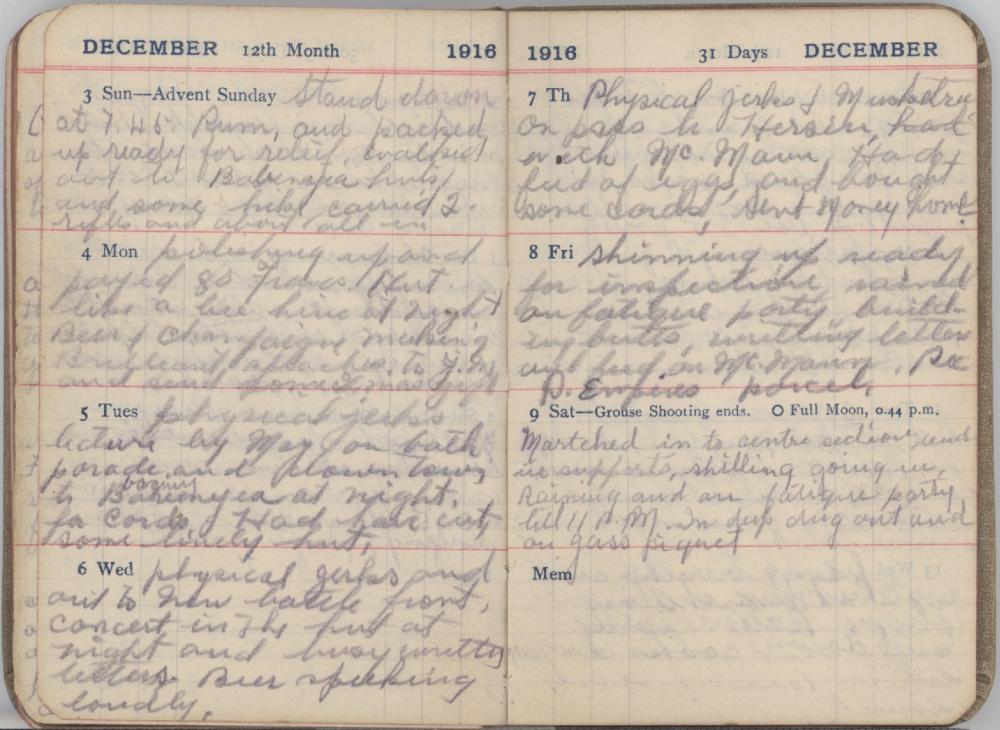 DECEMBER 12th Month 1916
3 Sun—Advent Sunday Stand down
at 7.45 Rum, and packed
up ready for relief, walked
out to huts
and some hike carried 2.
rifles and about all in
4 Mon polishing up and
payed 80 Francs Hut
like a bee hive at night
Beer & Champaigne making
to Y.M
and send some Xmas
5 Tues physical jerks
lecture by May on bath
parade, and down town
to at night.
for cords, Had hair cut,
some lively hut,
6 Wed physical jerks and
out to New battle front,
concert in The hut at
night and busy writting
letters Beer speeking
loudly.
1916 31 Days DECEMBER
7 Th Physical jerks & Musketry
On pass to Hersin, had
with Mc. Mann, Had
feed of eggs, and bought
some cards, Sent Money home
8 Fri Shinning up ready
for inspection, rained
on fatigue party build-
ing butts, writting letters
and feed on Mc.Mann, Rec
D. Empires parcel,
9 Sat—Grouse Shooting ends. O Full Moon, 0.44 p.m.
Martched in to centre section and
in supports, shilling going in,
Raining and on fatigue party
till 11 P.M. In deep dug out and
on gass piquet
Mem